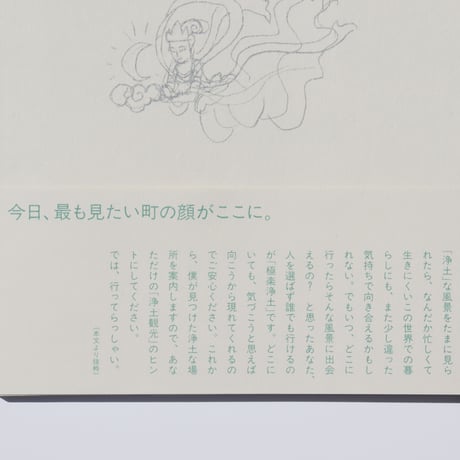 今日、最も見たい町の顔がここに。
「浄土」な風景をたまに見ら
れたら、なんだか忙しくて
生きにくいこの世界での暮
らしにも、また少し違った
気持ちで向き合えるかもし
れない。でもいつ、どこに
行ったらそんな風景に出会
えるの? と思ったあなた、
人を選ばず誰でも行けるの
が「極楽浄土」です。どこに
いても、気づこうと思えば
向こうから現れてくれるの
でご安心ください。これか
ら、僕が見つけた浄土な場
所を案内しますので、あな
ただけの「浄土観光」のヒン
トにしてください。
では、行ってらっしゃい。
(本文より抜粋)